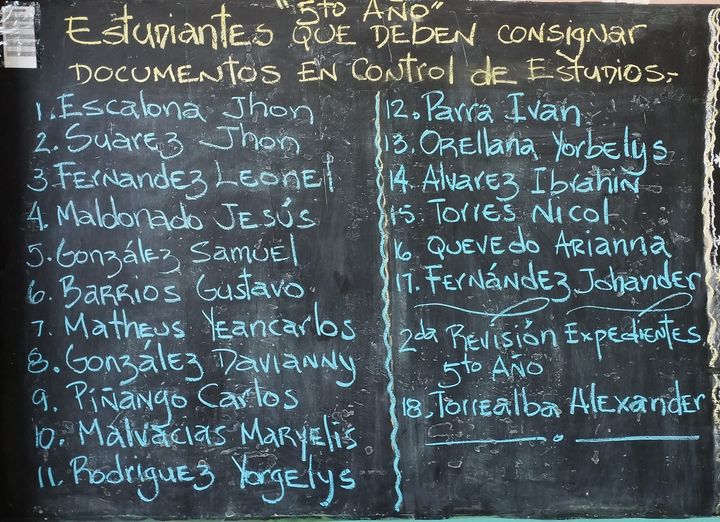 "5to AÑO"
Estudiantes QUE DEBEN consignar
DOCUMENTOS EN Control de Estudios.-
1. Escalona Jhon
2. Suarez Jhon
3. FERNANDEZ LEONEL
4. Maldonado JESÚS
5. González Samuel
6. BARRIOS Gustavo
7. Matheus Yeancarlos
8. González Davianny
9. Piñango Carlos
10. Malvacias Maryelis
11. Rodriguez Yorgelys
12. Parra Ivan
13. ORellana Yorbelys
14 Alvarez Ibrahiñ
15 Torres Nicol
16 QUEVEDO ARIANNA
17. FERNÁNDEZ Johander
2da Revisión Expedientes
5to AÑO
18. Torrealba Alexander